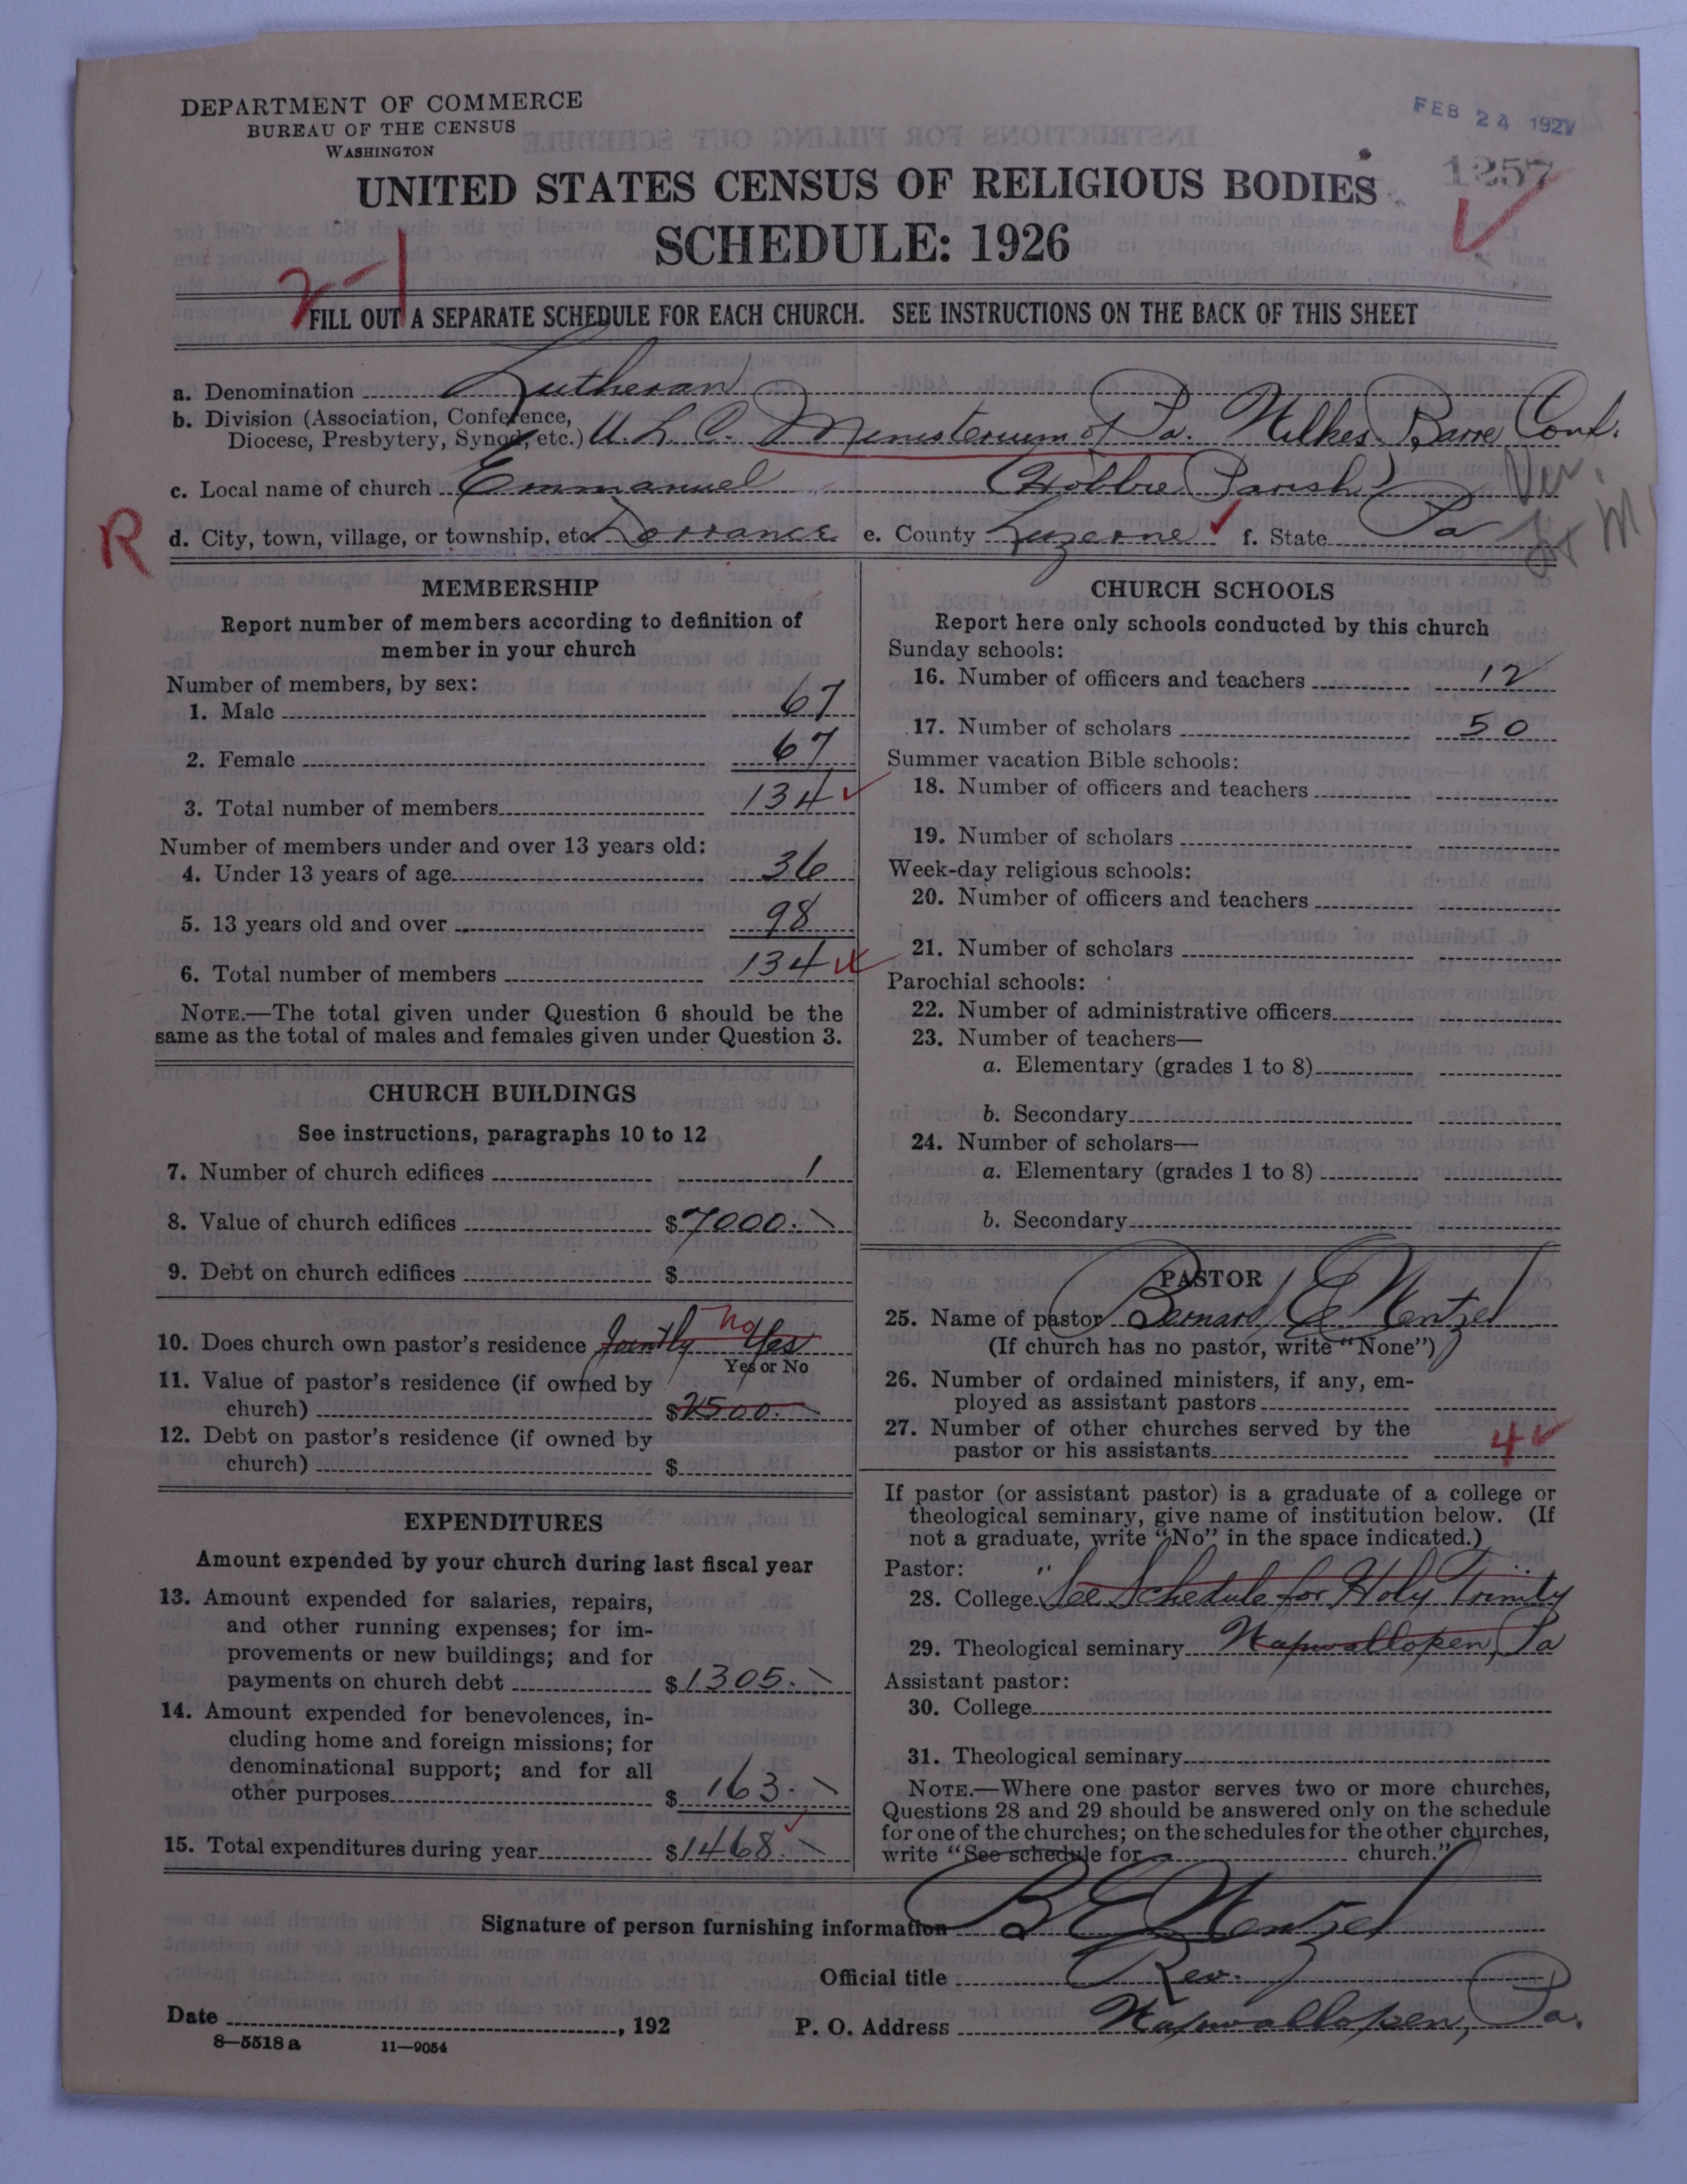 DEPARTMENT OF COMMERCE
BUREAU OF THE CENSUS
WASHINGTON
FEB 24 1927
1257
UNITED STATES CENSUS OF RELIGIOUS BODIES
SCHEDULE: 1926
2-1
FILL OUT A SEPARATE SCHEDULE FOR EACH CHURCH. SEE INSTRUCTIONS ON THE BACK OF THIS SHEET
a. Denomination Lutheran
b. Division (Association, Conference,
Diocese, Presbytery, Synod, etc.) U. L. C. Ministerium of Pa. Wilkes Barre Conf.
c. Local name of church Emmanuel (Hobbie Parish)
R
d. City, town, village, or township, etc. Dorrance e. County Luzerne f. State Pa
MEMBERSHIP
Report number of members according to definition of
member in your church
Number of members, by sex:
1. Male 67
2. Female 67
3. Total number of members 134
Number of members under and over 13 years old:
4. Under 13 years of age 36
5. 13 years old and over 98
6. Total number of members 134
NOTE.—The total given under Question 6 should be the
same as the total of males and females given under Question 3.
CHURCH BUILDINGS
See instructions, paragraphs 10 to 12
7. Number of church edifices 1
8. Value of church edifices $7000.
9. Debt on church edifices $
10. Does church own pastor's residence Jointly Yes No
Yes or No
11. Value of pastor's residence (if owned by
church) $2500.
12. Debt on pastor's residence (if owned by
church) $
EXPENDITURES
Amount expended by your church during last fiscal year
13. Amount expended for salaries, repairs,
and other running expenses; for im-
provements or new buildings; and for
payments on church debt $1305.
14. Amount expended for benevolences, in-
cluding home and foreign missions; for
denominational support; and for all
other purposes $163.
15. Total expenditures during year $1468.
CHURCH SCHOOLS
Report here only schools conducted by this church
Sunday schools:
16. Number of officers and teachers 12
17. Number of scholars 50
Summer vacation Bible schools:
18. Number of officers and teachers
19. Number of scholars
Week-day religious schools:
20. Number of officers and teachers
21. Number of scholars
Parochial schools:
22. Number of administrative officers
23. Number of teachers—
a. Elementary (grades 1 to 8)
b. Secondary
24. Number of scholars—
a. Elementary (grades 1 to 8)
b. Secondary
PASTOR
25. Name of pastor Bernard E Wentzel
(If church has no pastor, write "None")
26. Number of ordained ministers, if any, em-
ployed as assistant pastors
27. Number of other churches served by the
pastor or his assistants 4
If pastor (or assistant pastor) is a graduate of a college or
theological seminary, give name of institution below. (If
not a graduate, write "No" in the space indicated.)
Pastor:
28. College See Schedule for Holy Trinity
29. Theological seminary Wapwallopen, Pa
Assistant pastor:
30. College
31. Theological seminary
NOTE.—Where one pastor serves two or more churches,
Questions 28 and 29 should be answered only on the schedule
for one of the churches; on the schedules for the other churches,
write "See schedule for church."
Signature of person furnishing information B E Wentzel
Official title Rev.
Date , 192
P. O. Address Wapwallopen, Pa.
8—5518 a 11—9054